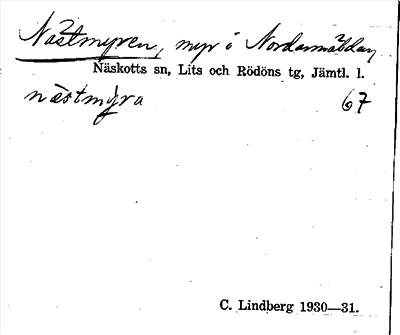 Nästmyren, myr i Nordannälden
Näskotts sn, Lits och Rödöns tg, Jämtl. l.
næstmỳra 67
C. Lindberg 1930—31.